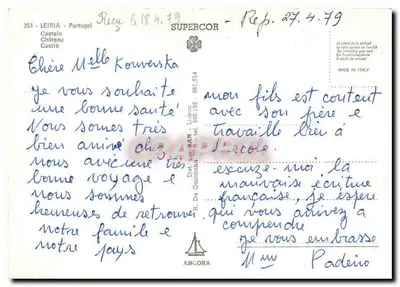 354 - LEIRIA - Portugal
Castelo
Château
Castle
Reçu le 18.4.79
SUPERCOR
Rep. 27.4.79
MADE IN ITALY
Chère Melle Kouverska
je vous souhaite
une bonne santé
Vous somes très
bien arivé chez
nous avec une tès
bonne voyage e
nous sommes
heureuses de retrouver
notre famille e
notre pays
ANCORA
mon fils est content
avec son père e
travaille bien à
l'ecole.
excuze-moi la
mauvaise ecriture
française, je espere
qui vous arrivez a
comprendre
je vous embrasse
Mme Padeiro